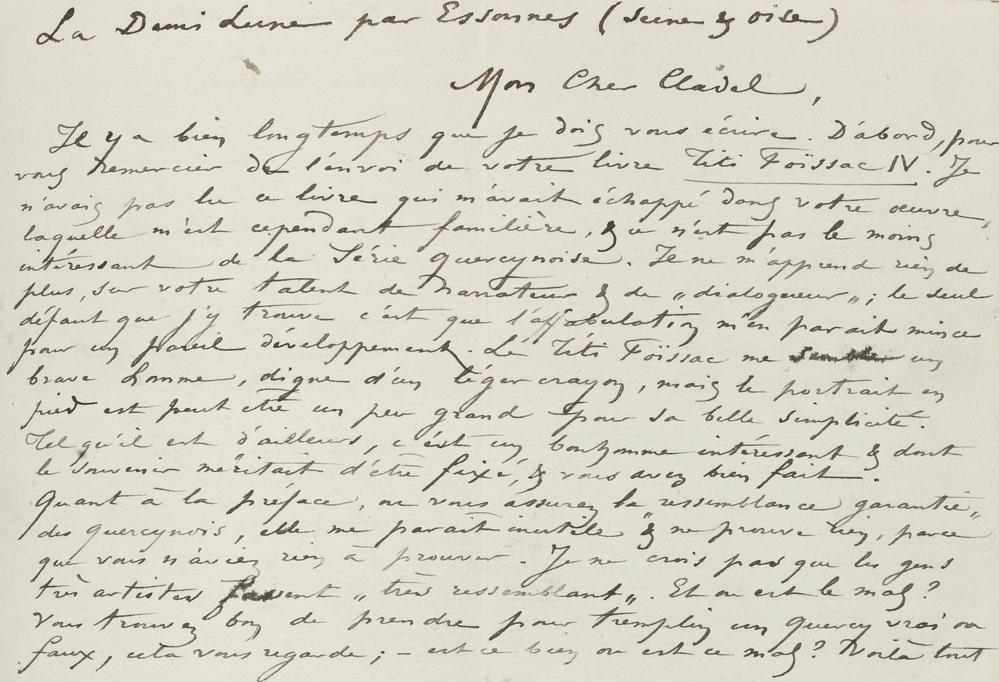 La Demi Lune par Essonnes (Seine & Oise)
Mon Cher Cladel,
Il y a bien longtemps que je dois vous écrire. D'abord, pour
vous remercier de l'envoi de votre livre Titi Foïssac IV. Je
n'avais pas lu ce livre qui m'avait échappé dans votre œuvre,
laquelle m'est cependant familière, & ce n'est pas le moins
intéressant de la Série quercynoise. Il ne m'apprend rien de
plus, sur votre talent de narrateur & de „dialogueur„; le seul
défaut que j'y trouve c'est que l'affabulation m'en parait mince
pour un pareil développement. Le Titi Foïssac me semble un
brave homme, digne d'un léger crayon, mais le portrait en
pied est peut être un peu grand pour sa belle simplicité.
Tel qu'il est d'ailleurs, c'est un bonhomme intéressant & dont
le souvenir méritait d'être fixé, & vous avez bien fait.
Quant à la préface, ou vous assurez la „ressemblance garantie„
des quercynois, elle me parait inutile & ne prouve rien, parce
que vous n'aviez rien a prouver. Je ne crois pas que les gens
très artistes fassent „très ressemblant„. Et ou est le mal?
Vous trouvez bon de prendre pour tremplin un Quercy vrai ou
faux, cela vous regarde; – est ce bien ou est ce mal? Voilà tout